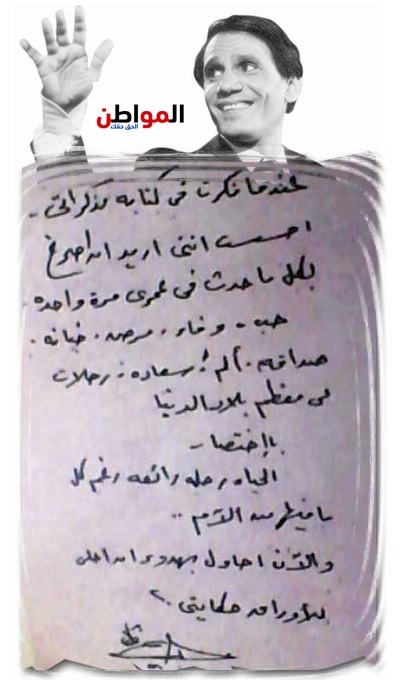 المواطن
الحق حقك
عندما فكرت في كتابه مذكراتي ..
احسست انني اريد ان اصرخ
بكل ما حدث في عمري مرة واحده .
حب . وفاء . مرض . خيانه .
صداقه . ألم ! سعاده . رحلات
في معظم بلاد الدنيا
باإختصار
الحياه رحله رائعه رغم كل
ما فيها من آلام ..
والآن احاول بهدوء ان احكى
للأوراق حكايتي ..